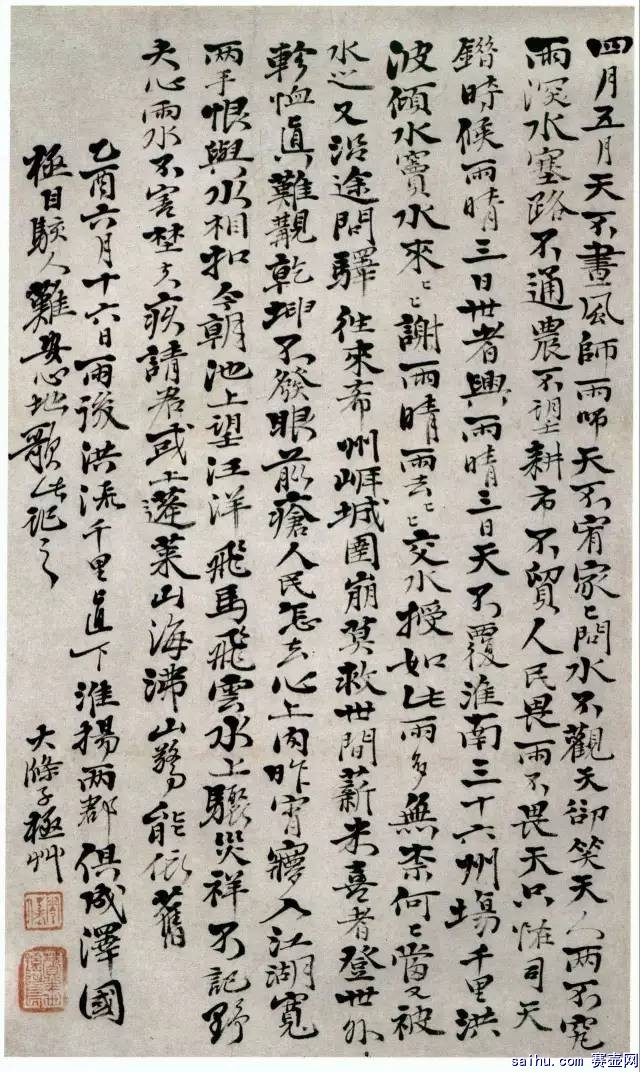 四月五月天不晝風師雨師天不宥家々問水不觀天卻笑天人兩不究
雨深水塞路不通農不望耕市不貿人民畏雨不畏天只怪司天
錯時候雨晴三日世者興雨晴三日天不覆淮南三十六州場千里洪
波傾水竇水來々謝雨晴雨去々交水授如此雨多無奈何々當又被
水之又沿途問驛往來希州城圍崩莫救世間薪米喜者登世外
軫恤真難覯乾坤不發眼前瘡人民怎去心上肉昨宵入江湖寬
兩手恨與水相扣今朝池上望汪洋飛馬飛雲水上驟災祥不記野
夫心雨水不害埜夫疾請君或上蓬萊山海沸山能依舊
乙酉六月十六日雨後洪流千里直下淮揚兩都俱成澤國
極目駭人難安心地歌此記之
大滌子極艸
saihu.com 赛壶网